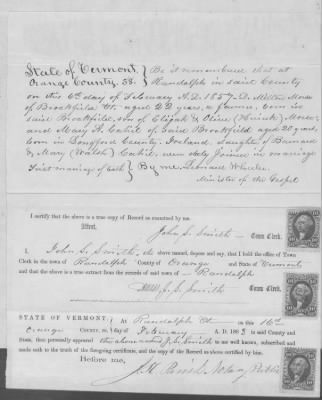 State of Vermont, } Be it remembered that at
Orange County, SS. } Randolph in said County
on this 6th day of February A.D. 1857 D. Milton Morse
of Brookfield Vt. aged 22 years, a farmer, born in
said Brookfield, son of Elijah & Olive Morse
and Mary A. Cahil of said Brookfield aged 20 years,
born in Longford County, Ireland, daughter of Bernard
& Mary (Walsh) Cahil, were duly Joined in marriage
First marriage of Each } By me, Wheeler
Minister of the Gospel
I certify that the above is a true copy of Record as examined by me.
Attest,
John S. Smith Town Clerk.
I, John S. Smith, the above named, depose and say, that I hold the office of Town
Clerk in the town of Randolph County of Orange and State of Vermont
and that the above is a true extract from the records of said town of Randolph
J. S. Smith
STATE OF VERMONT; } At Randolph Vt on this 16th
Orange County, ss. } day of February A. D. 186 in said County and
State, then personally appeared the above named J. S. Smith to me well known, subscribed and
made oath to the truth of the foregoing certificate, and the copy of the Record as above certified by him.
Before me,
Notary Public